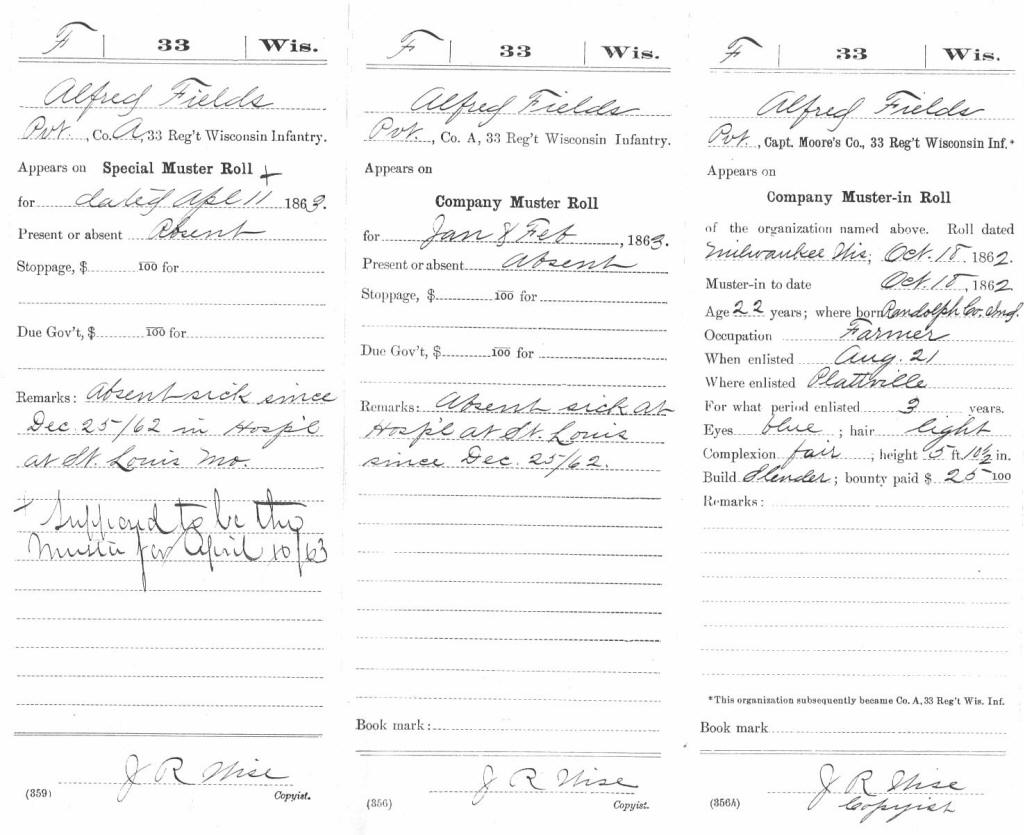 F | 33 | Wis.
Alfred Fields
Pvt., Co. A, 33 Reg't Wisconsin Infantry.
Appears on Special Muster Roll +
for dated Apl 11 1863.
Present or absent Absent
Stoppage, $ 100 for
Due Gov't, $ 100 for
Remarks: Absent sick since
Dec. 25/62 in Hosp'l
at St. Louis Mo.
+ Supposed to be the
Muster for April 10/63
J R Wise
(359) Copyist.
F | 33 | Wis.
Alfred Fields
Pvt., Co. A, 33 Reg't Wisconsin Infantry.
Appears on
Company Muster Roll
for Jan & Feb, 1863.
Present or absent Absent
Stoppage, $ 100 for
Due Gov't, $ 100 for
Remarks: Absent sick at
Hosp'l at St. Louis
since Dec. 25/62.
Book mark:
J R Wise
(356) Copyist.
F | 33 | Wis.
Alfred Fields
Pvt., Capt. Moore's Co., 33 Reg't Wisconsin Inf.*
Appears on
Company Muster-in Roll
of the organization named above. Roll dated
Milwaukee Wis, Oct. 18, 1862.
Muster-in to date Oct. 18, 1862
Age 22 years; where born Randolph Co. Ind.
Occupation Farmer
When enlisted Aug. 21
Where enlisted Plattville
For what period enlisted 3 years.
Eyes blue; hair light
Complexion fair; height 5 ft. 10½ in.
Build Slender; bounty paid $ 25 100
Remarks:
*This organization subsequently became Co. A, 33 Reg't Wis. Inf.
Book mark
J R Wise
(356A) Copyist